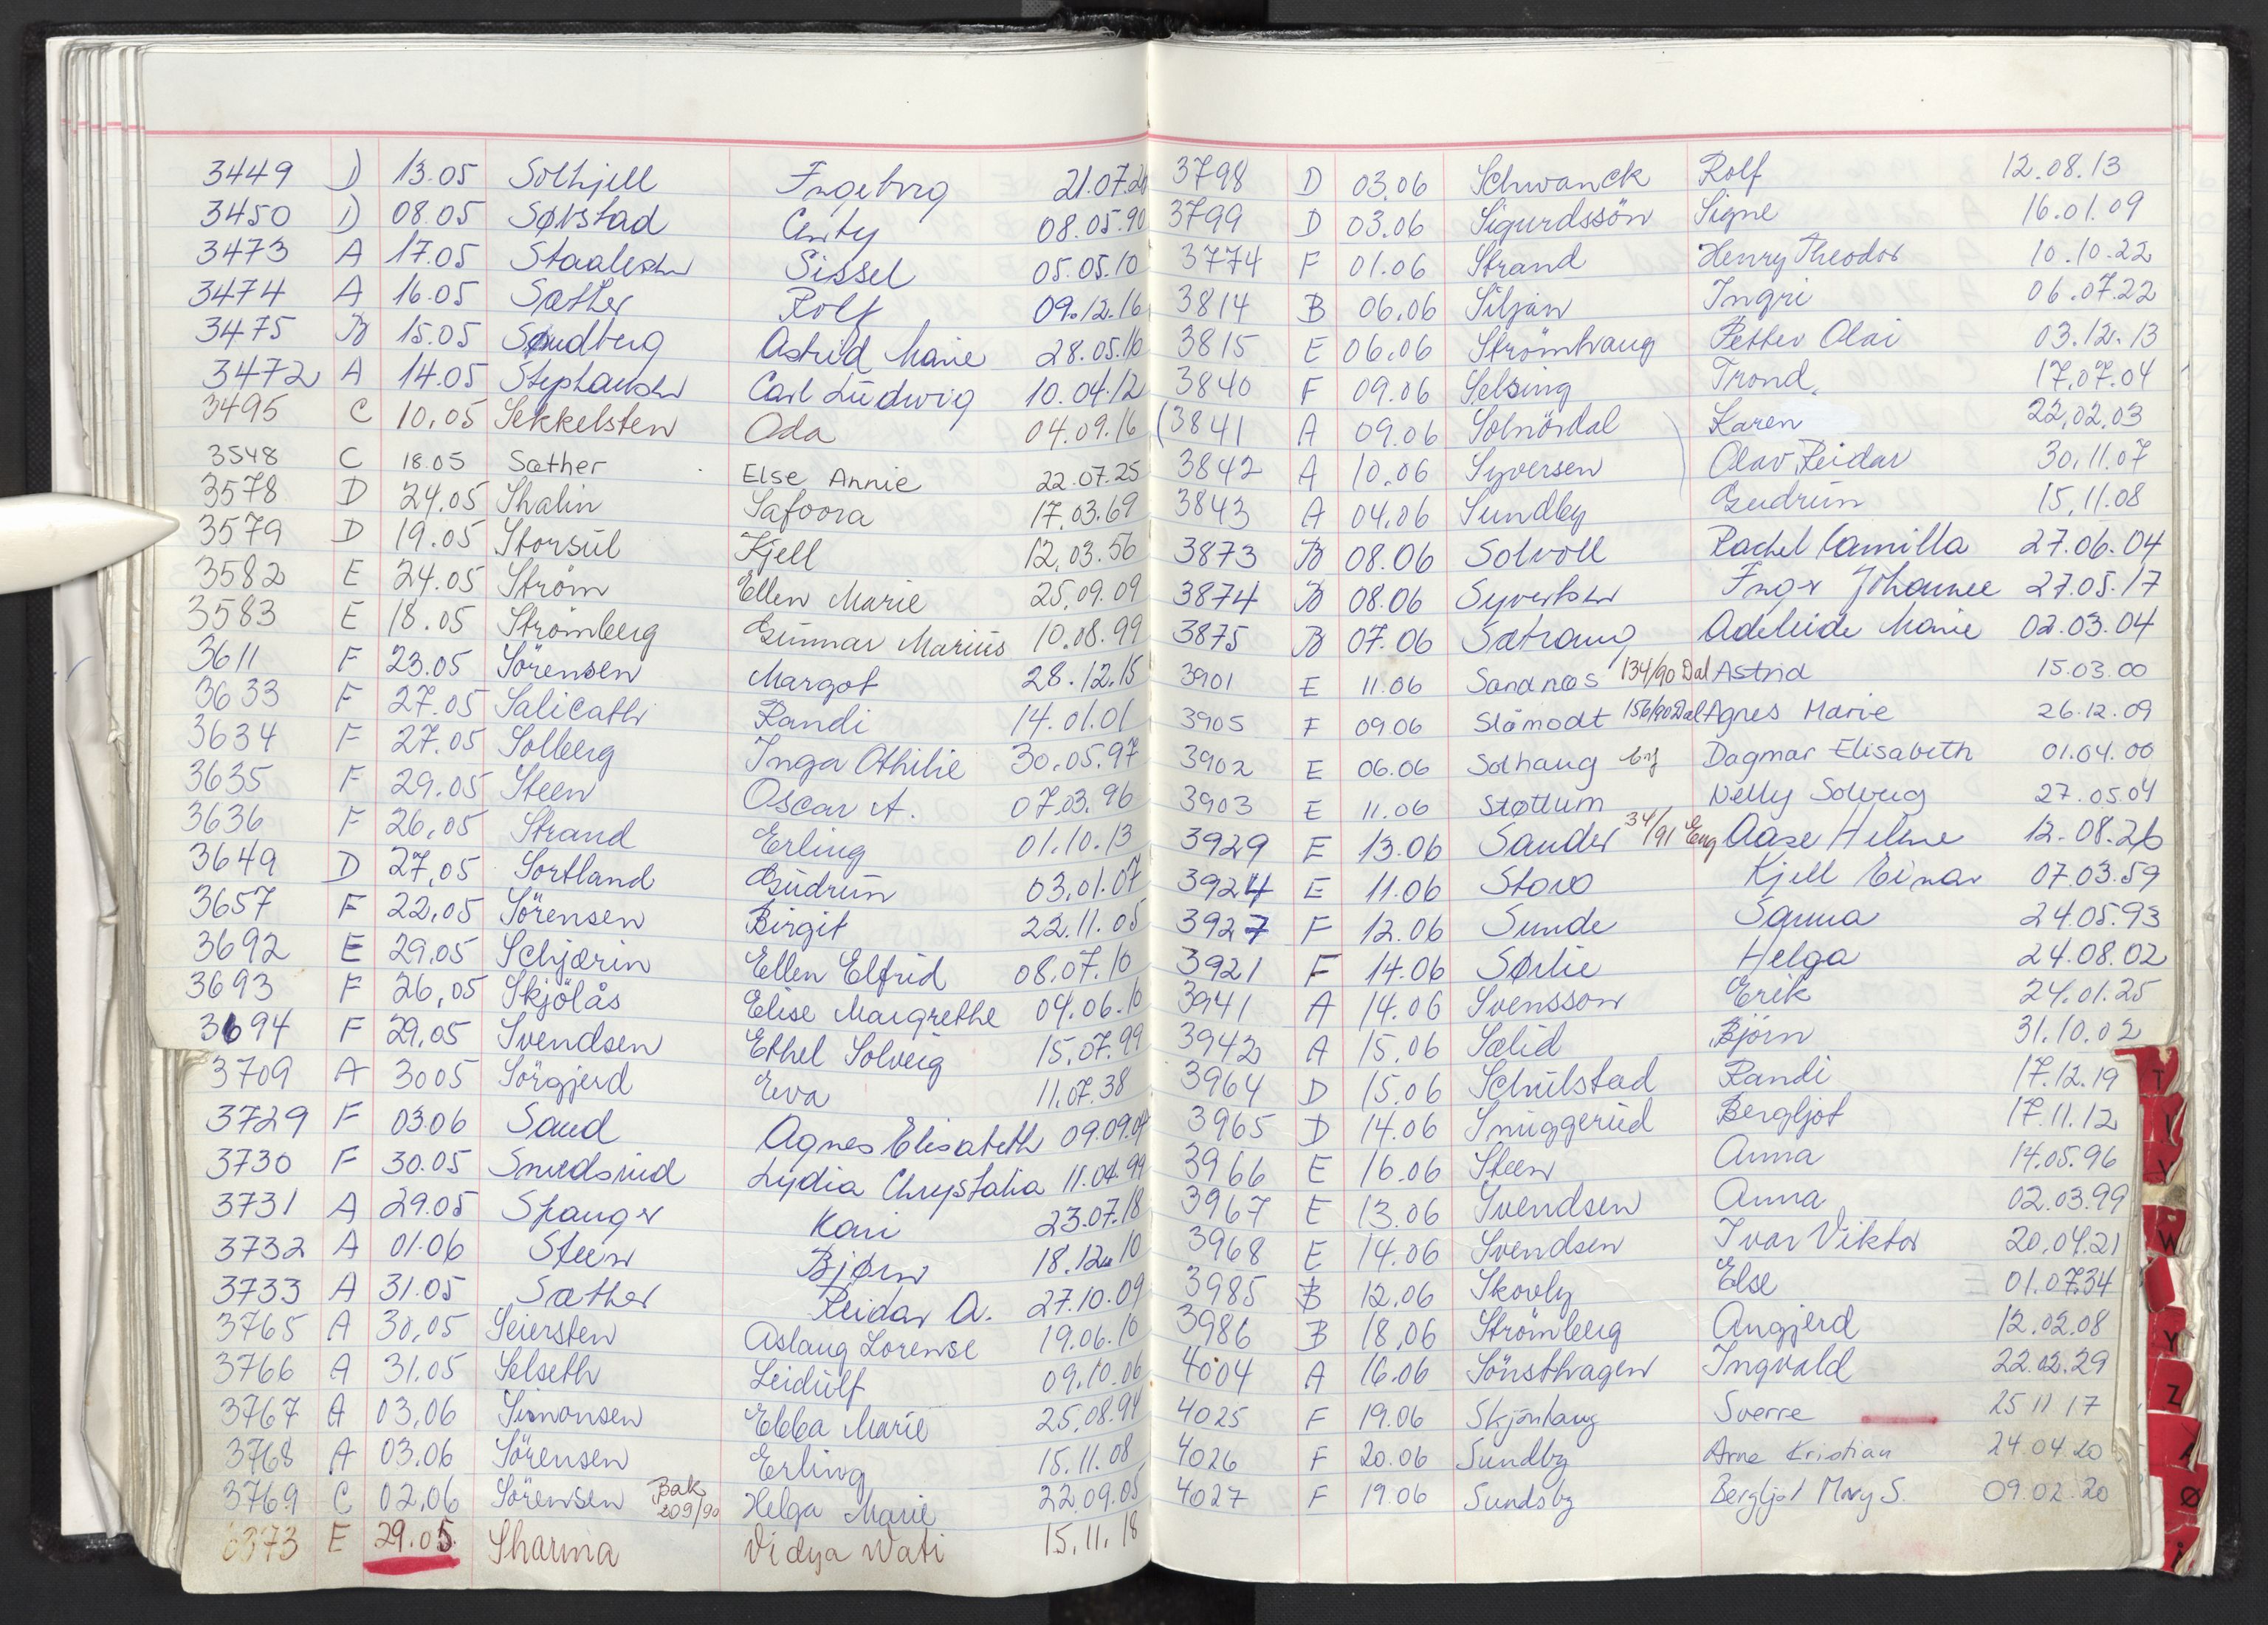 3449 D 13.05 Solhjell Ingeborg 21.07.20
3450 D 08.05 Sørstad Cinty 08.05.90
3473 A 17.05 Staalesen Sissel 05.05.10
3474 A 16.05 Sæther Rolf 09.12.16
3475 B 15.05 Sandberg Astrid Marie 28.05.16
3472 A 14.05 Stephansen Carl Ludwig 10.04.12
3495 C 10.05 Sekkelsten Oda 04.09.16
3548 C 18.05 Sæther Else Annie 22.07.25
3578 D 24.05 Shalin Safoora 17.03.69
3579 D 19.05 Storsul Kjell 12.03.56
3582 E 24.05 Ström Ellen Marie 25.09.09
3583 E 18.05 Strömberg Gunnar Marius 10.08.99
3611 F 23.05 Sörensen Margot 28.12.15
3633 F 27.05 Salicath Randi 14.01.01
3634 F 27.05 Solberg Inga Othilie 30.05.97
3635 F 29.05 Steen Oscar A. 07.03.96
3636 F 26.05 Strand Erling 01.10.13
3649 D 27.05 Sortland Gudrun 03.01.07
3657 F 22.05 Sörensen Birgit 22.11.05
3692 E 29.05 Schjærin Ellen Elfrid 08.07.10
3693 F 26.05 Skjölås Elise Margrethe 04.06.10
3694 F 29.05 Svendsen Ethel Solveig 15.07.99
3709 A 30 05 Sörgjerd Eva 11.07.38
3729 F 03.06 Sand Agnes Elisabeth 09.09.04
3730 F 30.05 Smedsrud Lydia Chrystalia 11.04.99
3731 A 29.05 Spanger Kari 23.07.18
3732 A 01.06 Steen Bjørn 18.12.10
3733 A 31.05 Sæther Reidar A. 27.10.09
3765 A 30.05 Seiersten Aslaug Lorense 19.06.10
3766 A 31.05 Selseth Leidulf 09.10.06
3767 A 03.06 Simonsen Ebba Marie 25.08.94
3768 A 03.06 Sörensen Erling 15.11.08
3769 C 02.06 Sörensen Bak 209/90 Helga Marie 22.09.05
3373 E 29.05 Sharma Vidya Wati 15.11.18
3798 D 03.06 Schwanck Rolf 12.08.13
3799 D 03.06 Sigurdssön Signe 16.01.09
3774 F 01.06 Strand Henry Theodor 10.10.22
3814 B 06.06 Siljan Ingri 06.07.22
3815 E 06.06 Strömhaug Petter Olai 03.12.13
3840 F 09.06 Selsing Trond. 17.07.04
(3841 A 09.06 Solnördal ) Karen 22.02.03
3842 A 10.06 Syversen Olav Reidar 30.11.07
3843 A 04.06 Sundby Gudrun 15.11.08
3873 B 08.06 Solvoll Rachel Camilla 27.06.04
3874 B 08.06 Syvertsen Inger Johanne 27.05.17
3875 B 07.06 Sætrang Adeleide Marie 02.03.04
3901 E 11.06 Sandnæs 134/90 Dal Astrid 15.03.00
3905 F 09.06 Slåmodt 156/90 Dal Agnes Marie 26.12.09
3902 E 06.06 Solhaug Dagmar Elisabeth 01.04.00
3903 E 11.06 Støttum Nelly Solveig 27.05.04
3929 E 13.06 Sander 34/91 Eng Aase Helene 12.08.26
3924 E 11.06 Storo Kjell Einar 07.03.59
3927 F 12.06 Sunde Sanna 24.05.93
3921 F 14.06 Sørlie Helga 24.08.02
3941 A 14.06 Svensson Erik 24.01.25
3942 A 15.06 Sælid Björn 31.10.02
3964 D 15.06 Schulstad Randi 17.12.19
3965 D 14.06 Snuggerud Bergljot 17.11.12
3966 E 16.06 Steen Anna 14.05.96
3967 E 13.06 Svendsen Anna 02.03.99
3968 E 14.06 Svendsen Ivar Viktor 20.04.21
3985 B 12.06 Skovly Else 01.07.34
3986 B 18.06 Strömberg Angjerd 12.02.08
4004 A 16.06 Sönsthagen Ingvald 22.02.29
4025 F 19.06 Skjönhaug Sverre 25 11 17
4026 F 20.06 Sundby Arne Kristian 24.04.20
4027 F 19.06 Sundsby Bergljot Mary S. 09.02.20
T
V
W
Y
Z
Ø